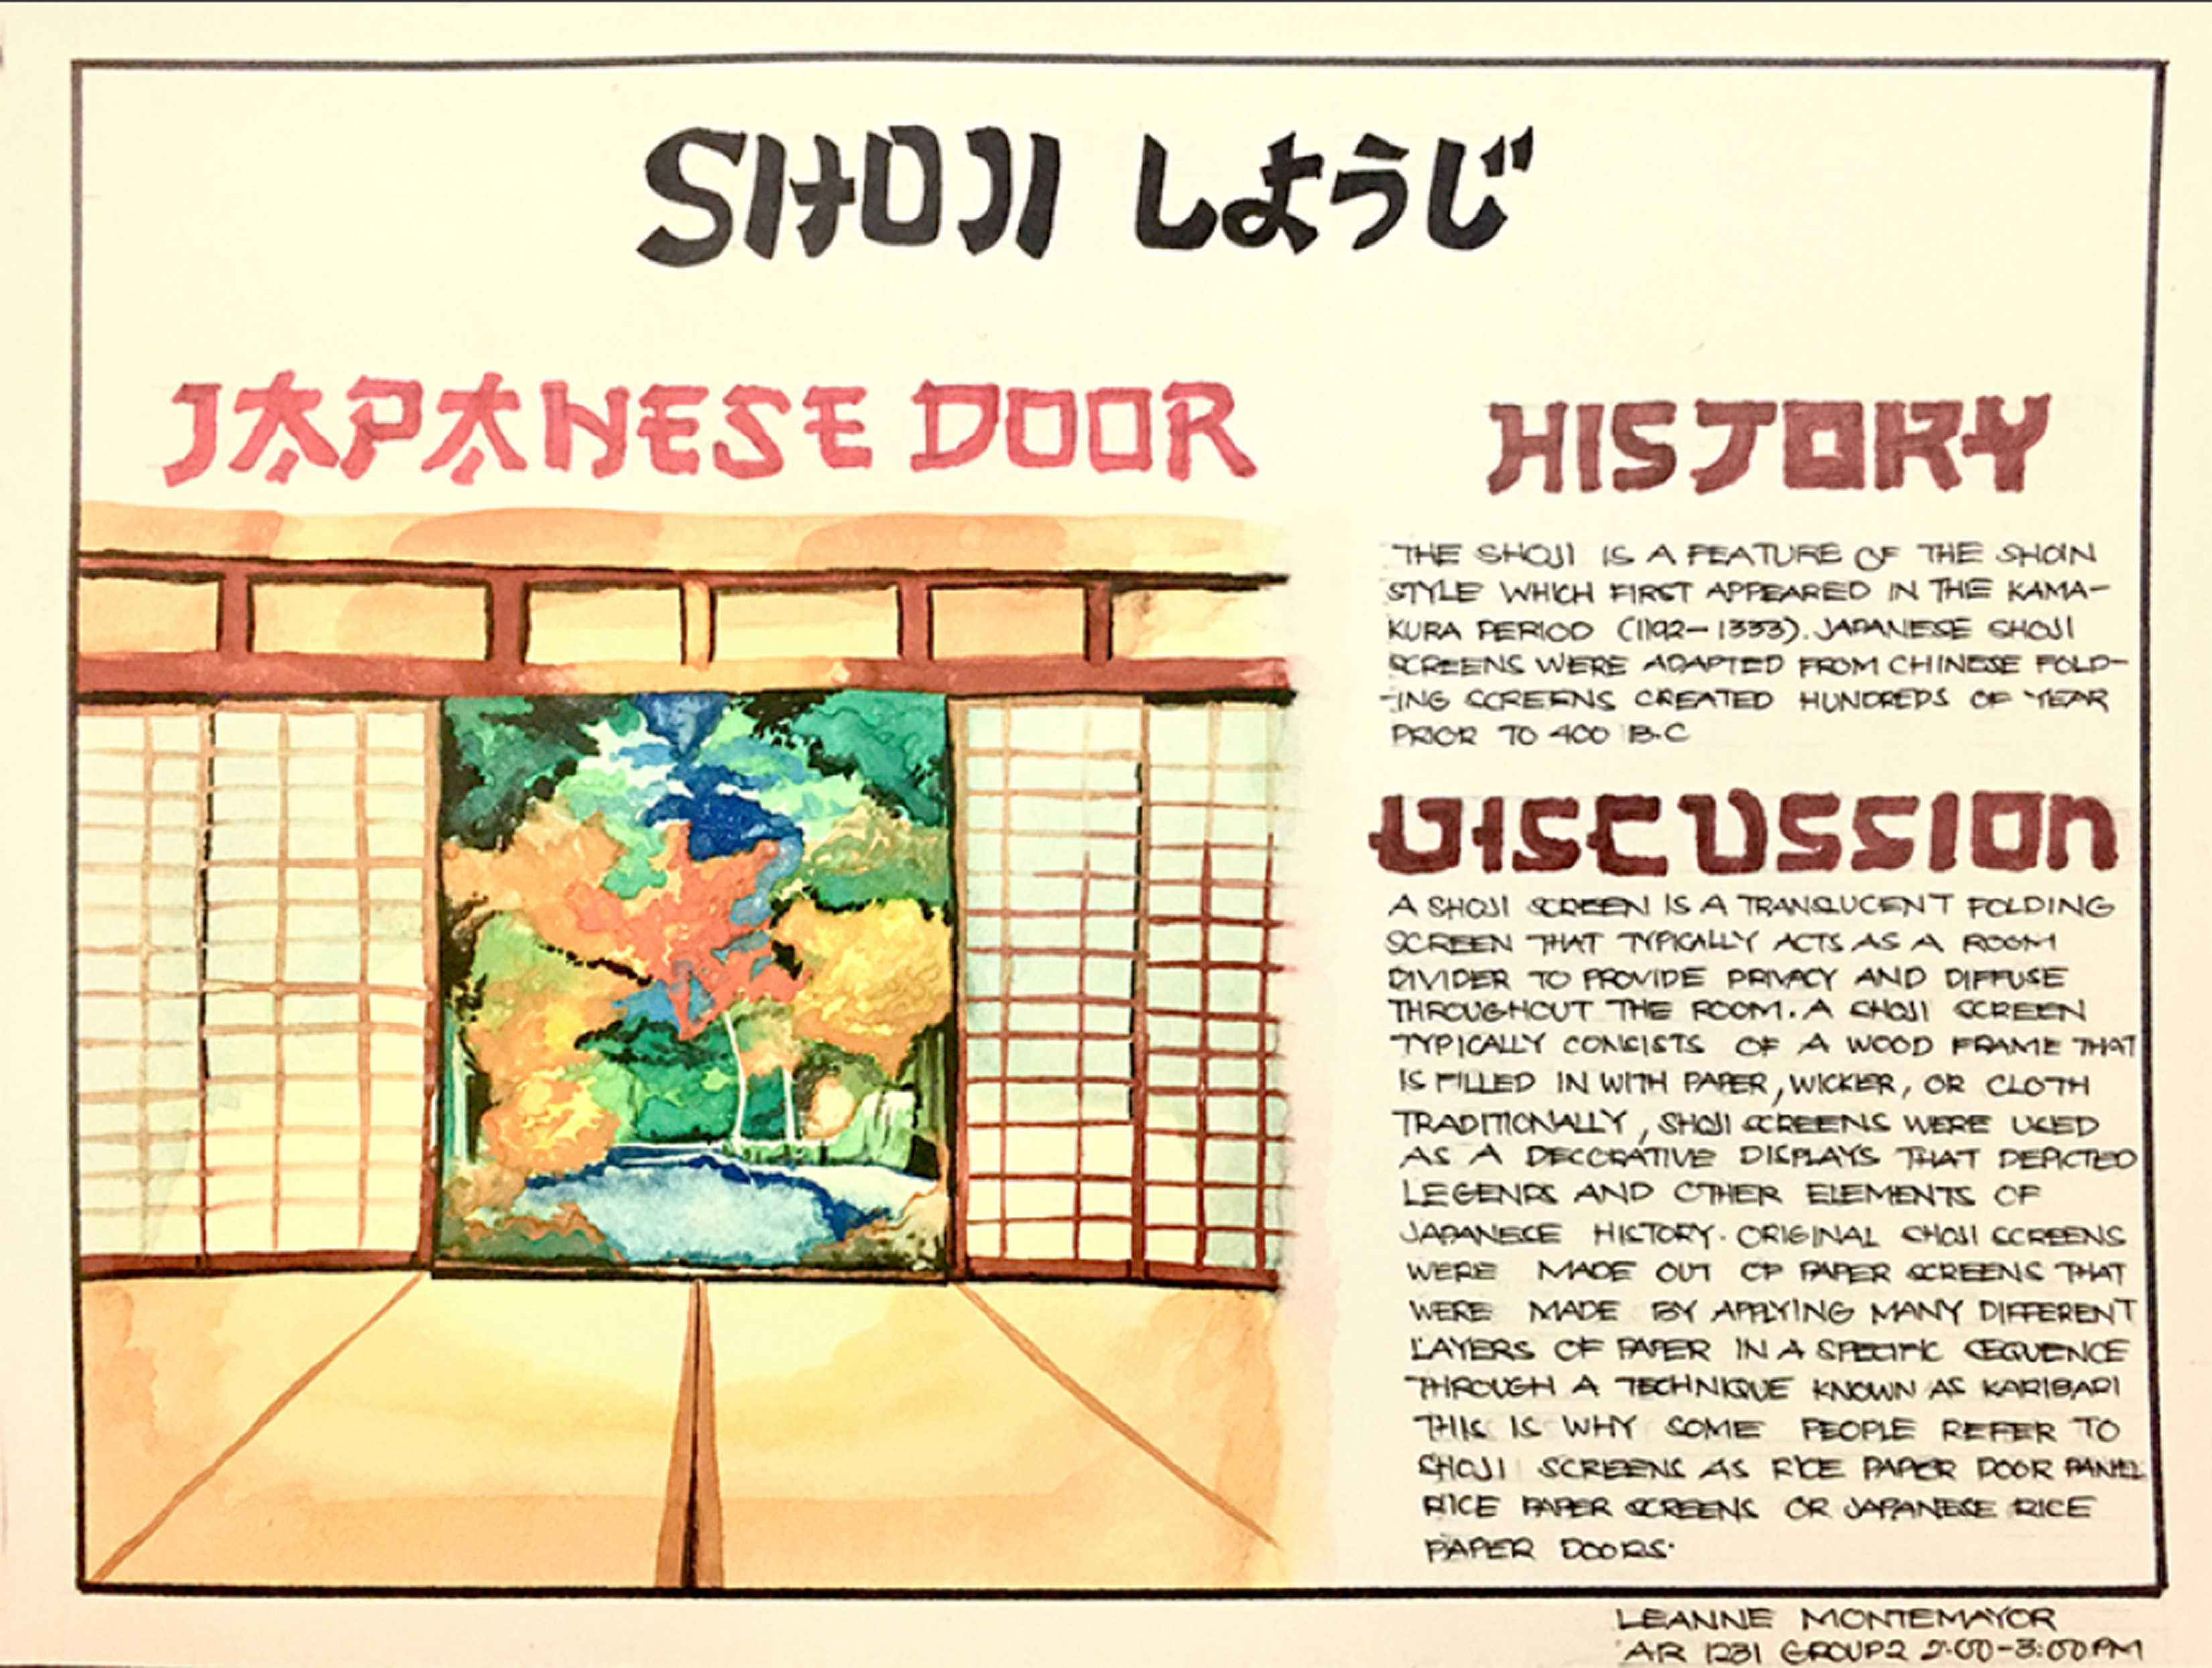 SHOJI しようじ
JAPANESE DOOR
HISTORY
THE SHOJI IS A FEATURE OF THE SHOIN
STYLE WHICH FIRST APPEARED IN THE KAMA-
KURA PERIOD (1192-1333). JAPANESE SHOJI
SCREENS WERE ADAPTED FROM CHINESE FOLD-
-ING SCREENS CREATED HUNDREDS OF YEAR
PRIOR TO 400 B.C
DISCUSSION
A SHOJI SCREEN IS A TRANSLUCENT FOLDING
SCREEN THAT TYPICALLY ACTS AS A ROOM
DIVIDER TO PROVIDE PRIVACY AND DIFFUSE
THROUGHOUT THE ROOM. A SHOJI SCREEN
TYPICALLY CONSISTS OF A WOOD FRAME THAT
IS FILLED IN WITH PAPER, WICKER, OR CLOTH
TRADITIONALLY, SHOJI SCREENS WERE USED
AS A DECORATIVE DISPLAYS THAT DEPICTED
LEGENDS AND OTHER ELEMENTS OF
JAPANESE HISTORY. ORIGINAL SHOJI SCREENS
WERE MADE OUT OF PAPER SCREENS THAT
WERE MADE BY APPLYING MANY DIFFERENT
LAYERS OF PAPER IN A SPECIFIC SEQUENCE
THROUGH A TECHNIQUE KNOWN AS KARIBARI
THIS IS WHY SOME PEOPLE REFER TO
SHOJI SCREENS AS RICE PAPER DOOR PANEL
RICE PAPER SCREENS OR JAPANESE RICE
PAPER DOORS.
LEANNE MONTEMAYOR
AR 1231 GROUP2 2:00-3:00 PM